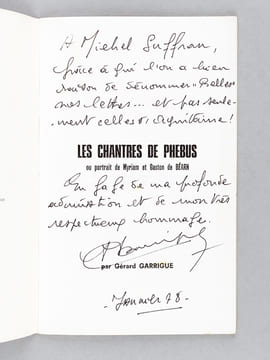 A Michel Suffran,
grâce à qui l'on a bien
raison de dénommer "Belles"
nos lettres... et pas seule-
ment celles d'Aquitaine !
LES CHANTRES DE PHEBUS
ou portrait de Myriam et Gaston de BÉARN
En gage de ma profonde
admiration et de mon très
respectueux hommage.
par Gérard GARRIGUE
Janvier 78 -